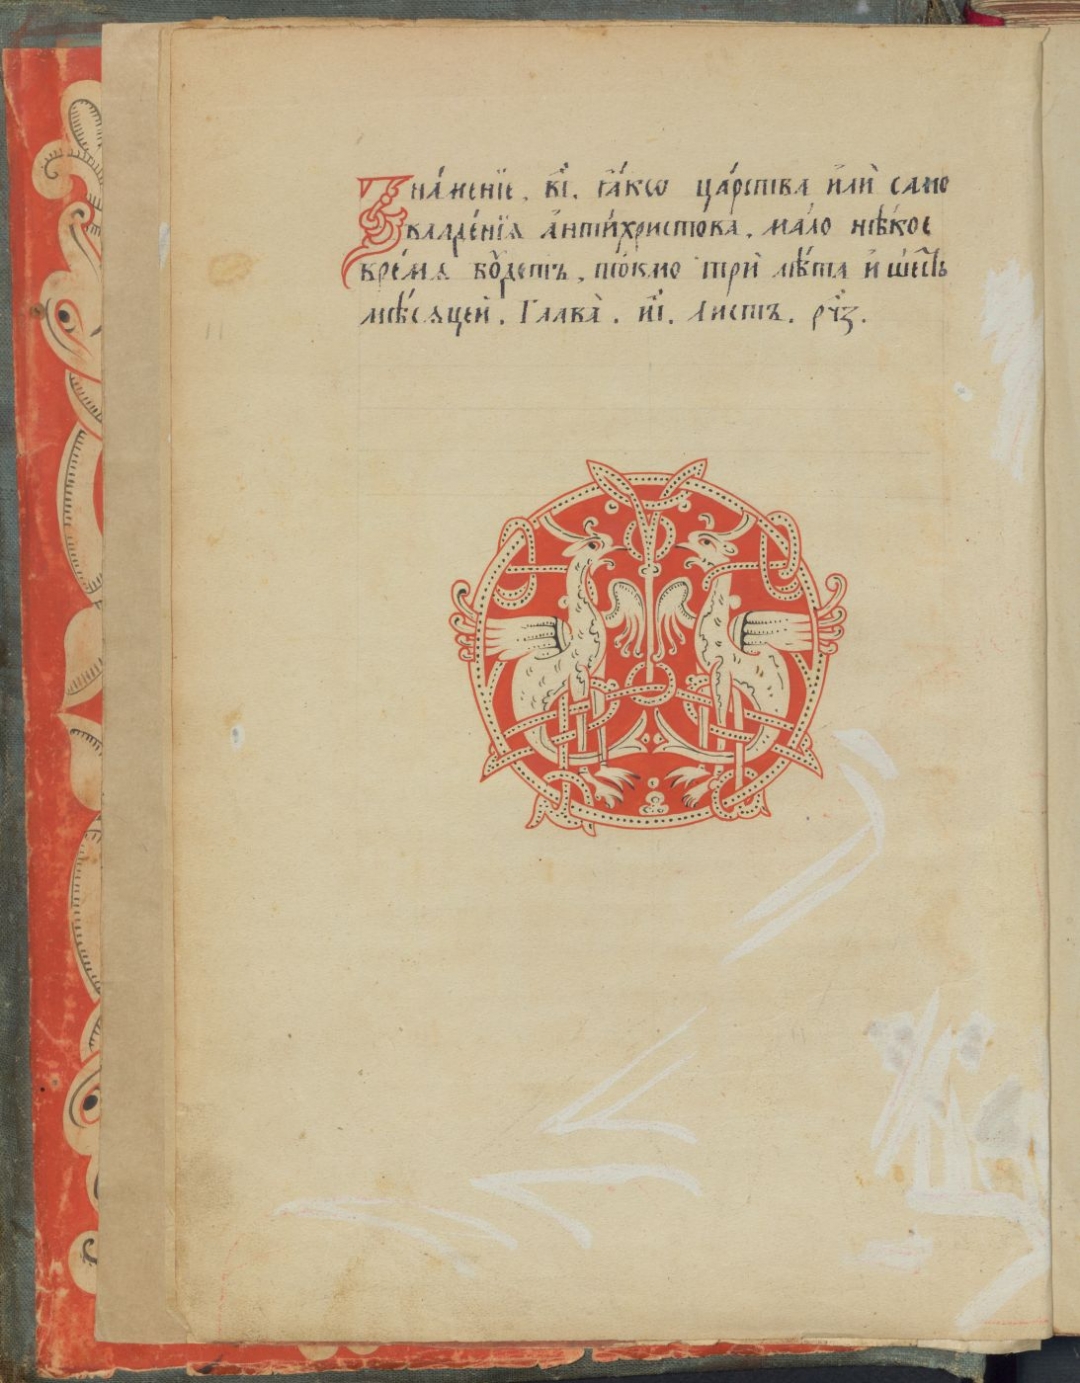 Зна́менїе. в҃і. ꙗ҆́кѡ ца́рства и҆лѝ само
владе́нїѧ а҆нти́христова, ма́ло нѣ́кое
вре́мѧ бꙋ́детъ, то́кмо трѝ лѣ́та и҆ ше́сть
мѣ́сѧцей. Глава̀. и҃і. Листъ. рч҃з.